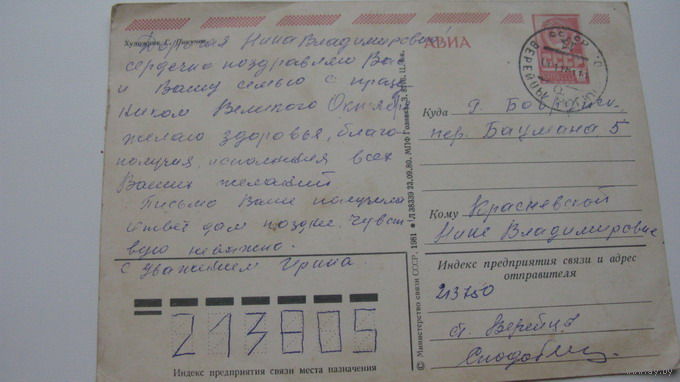 Художник С.
Дорогая Нина Владимировна!
сердечно поздравляю Вас
и Вашу семью с празд
ником Великого Октября
желаю здоровья, благо
получия, исполнения всех
Ваших желаний
Письмо Ваше получила
ответ дам позднее. Чувст
вую неважно.
С уважением Ирина.
АВИА
Куда г. Бобруйск
пер. Баумана 5
Кому Красневской
Нине Владимировне
Индекс предприятия связи и адрес
отправителя
213750
ст. Верейцы
213805
Индекс предприятия связи места назначения
© Министерство связи СССР. 1981
Л 38339 23.09.80. МПФ Гознака.